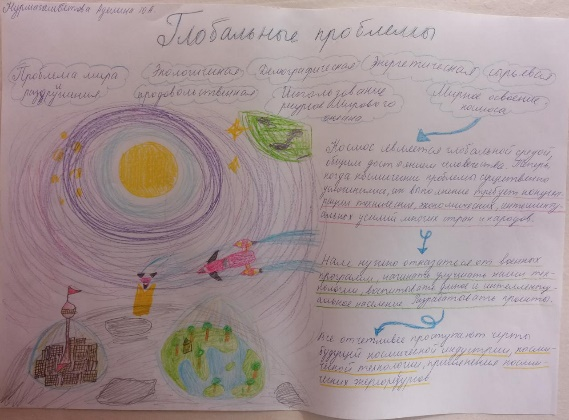 Аделина 10 А
Глобальные проблемы
Проблема мира и разоружения
Экологическая
Демографическая
Энергетическая
сырьевая
продовольственная
Использование ресурсов Мирового океана
Мирное освоение космоса
Космос является глобальной средой,
общим достоянием человечества. Теперь,
когда космические программы существенно
усложнились, их выполнение требует концент-
рации технических, экономических, интеллекту-
альных усилий многих стран и народов.
Нам нужно отказаться от военных
программ, начинать улучшать наши тех-
нологии, воспитывать умное и интеллекту-
альное население. Разрабатывать проекты.
Все отчетливее проступают черты
будущей космической индустрии, косми-
ческой технологии, применения косми-
ческих энергоресурсов